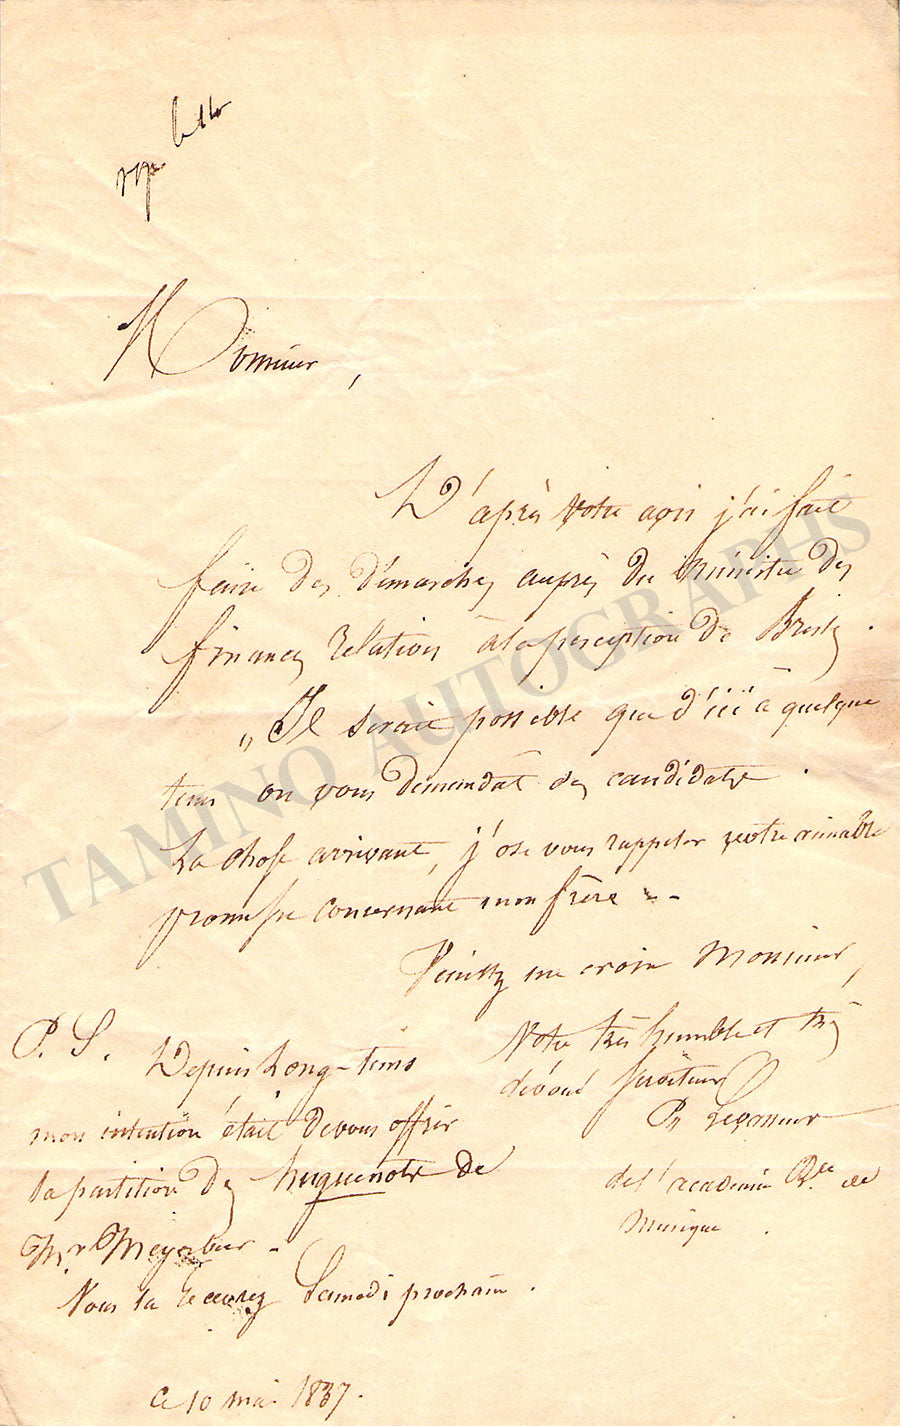 Monsieur,
D'après votre avis j'ai fait
faire des démarches auprès du Ministre des
finances relatives à la perception de Brest.
"Il serait possible que d'ici à quelque
tems on vous demandât des candidats.
La chose arrivant, j'ose vous rappeler votre aimable
promesse concernant mon frère.
Veuillez me croire Monsieur,
Votre très humble et très
dévoué serviteur
Pr Levasseur
de l'académie Rle de
Musique.
P. S. Depuis Long-tems
mon intention était de vous offrir
la partition des huguenots de
Mr Meyerbeer -
Vous la recevrez Samedi prochain.
Ce 10 mai 1837.
TAMINO AUTOGRAPHS